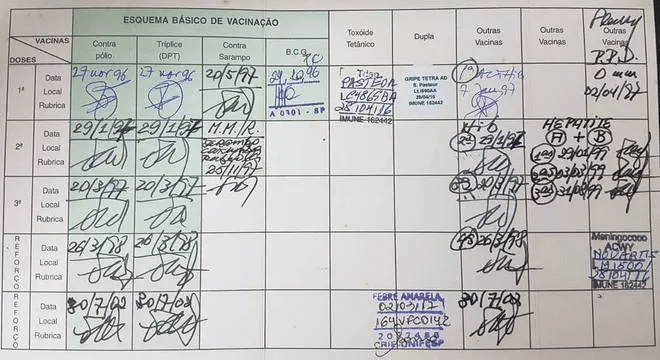 ESQUEMA BÁSICO DE VACINAÇÃO
VACINAS
DOSES
Contra pólio
Tríplice (DPT)
Contra Sarampo
B.C.G.
Toxóide Tetânico
Dupla
Outras Vacinas
Outras Vacinas
Outras Vacinas
P.P.D.
1ª
Data
Local
Rubrica
27 nov 96
27 nov 96
20/5/97
A 0701 - SP
PASTEUR
28104116
IMUNE 162442
GRIPE TETRA AD
S. Pasteur
28/04/16
IMUNE 162442
1ª
0 mm
02/04/97
2ª
Data
Local
Rubrica
29/1/97
29/1/97
M.M.R.
Sarampo
20/11/97
HiB
2ª 29/1/97
HEPATITE
A + B
1ª 29/01/99
2ª 03/03/99
3ª 31/08/99
3ª
Data
Local
Rubrica
20/3/97
20/3/97
3ª 20/3/97
REFORÇO
Data
Local
Rubrica
26/3/98
26/3/98
4ª 26/3/98
Meningococo
ACWY
NOVARTIS
M1500
28104116
IMUNE 162442
REFORÇO
Data
Local
Rubrica
30/7/02
30/7/02
FEBRE AMARELA
02/03/17
164VFC014Z
CRIE UNIFESP
30/7/02